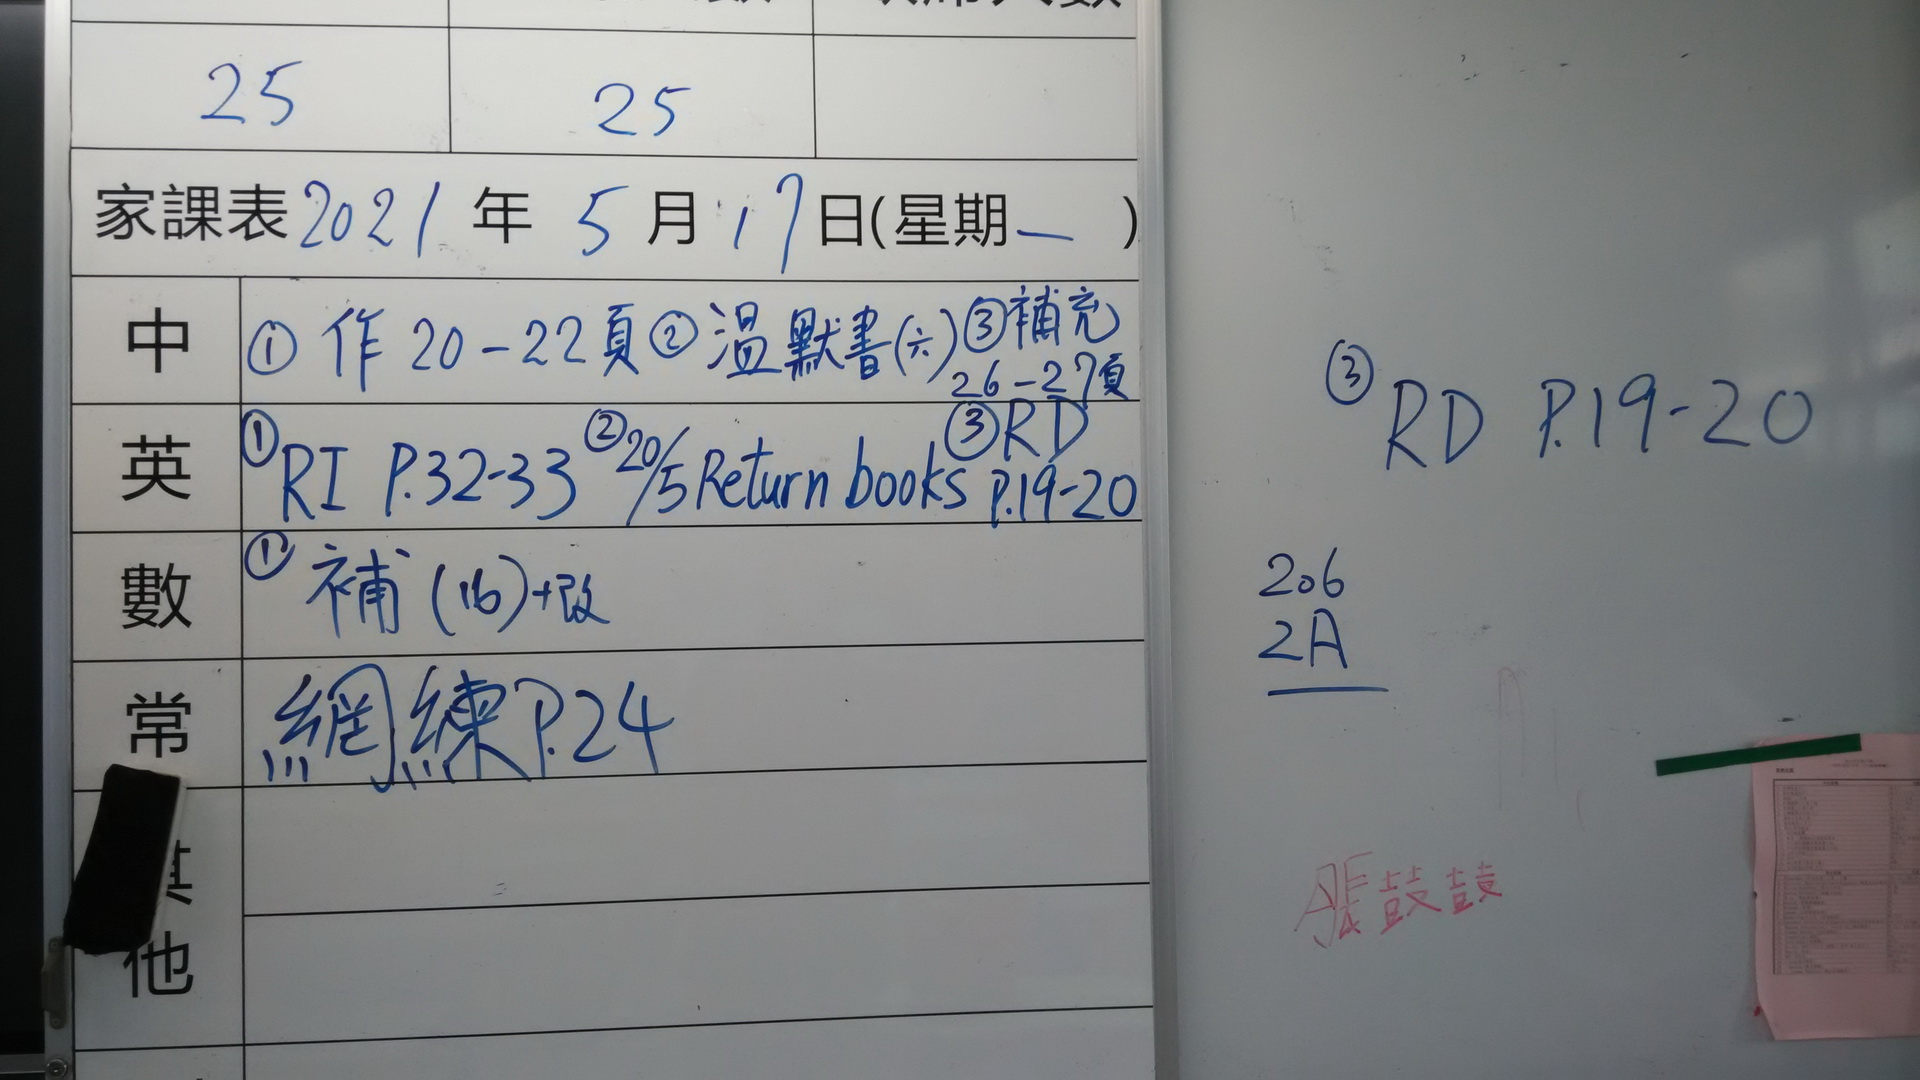 25 25
家課表 2021 年 5 月 17 日(星期一 )
中 ① 作 20-22頁 ② 溫默書(六) ③ 補充
26-27頁
英 ① RI P.32-33 ② 20/5 Return books ③ RD
P.19-20
數 ① 補 (16)+改
常 網練 P.24
其
他
③ RD P.19-20
206
2A
脹鼓鼓